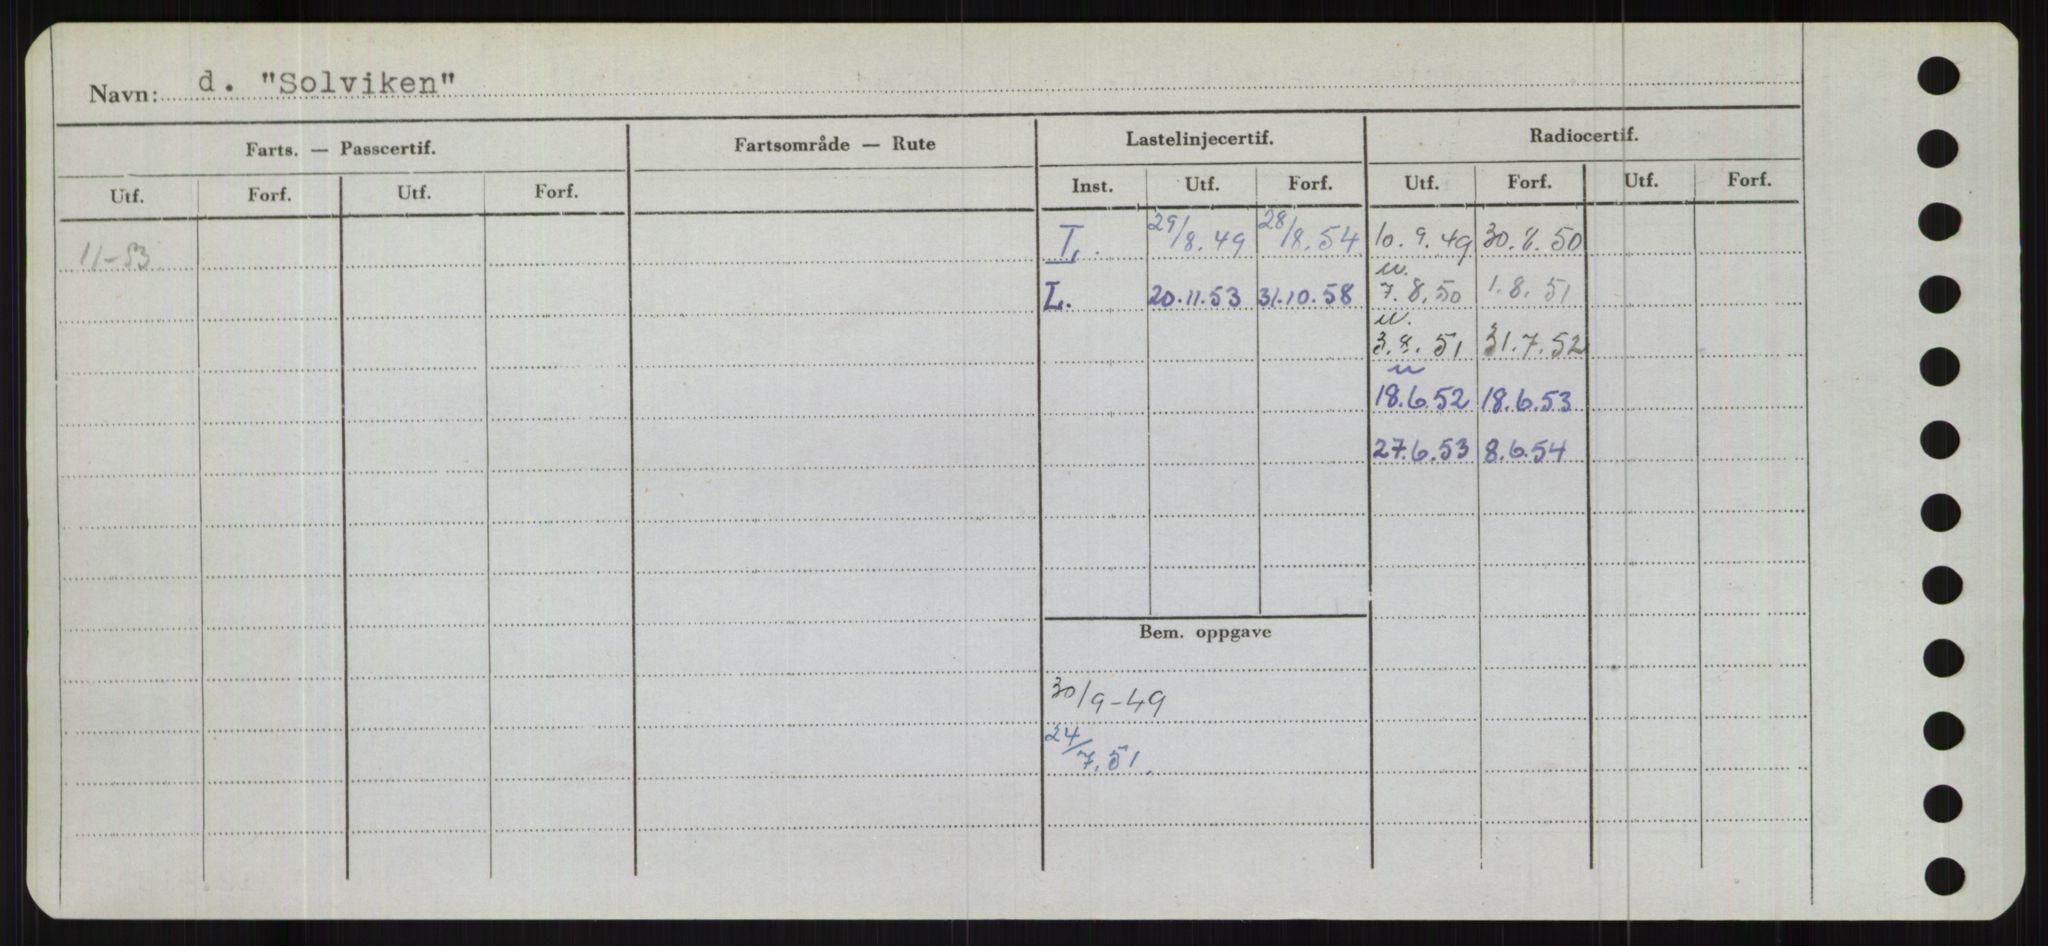 Navn: d. "Solviken"
Farts. — Passcertif. Fartsområde — Rute Lastelinjecertif. Radiocertif.
Utf. Forf. Utf. Forf. Inst. Utf. Forf. Utf. Forf. Utf. Forf.
11-53 L. 29/8.49 28/8.54 10.9.49 30.8.50
u.
L. 20.11.53 31.10.58 7.8.50 1.8.51
u.
3.8.51 31.7.52
u
18.6.52 18.6.53
27.6.53 8.6.54
Bem. oppgave
30/9-49
24/7.51.